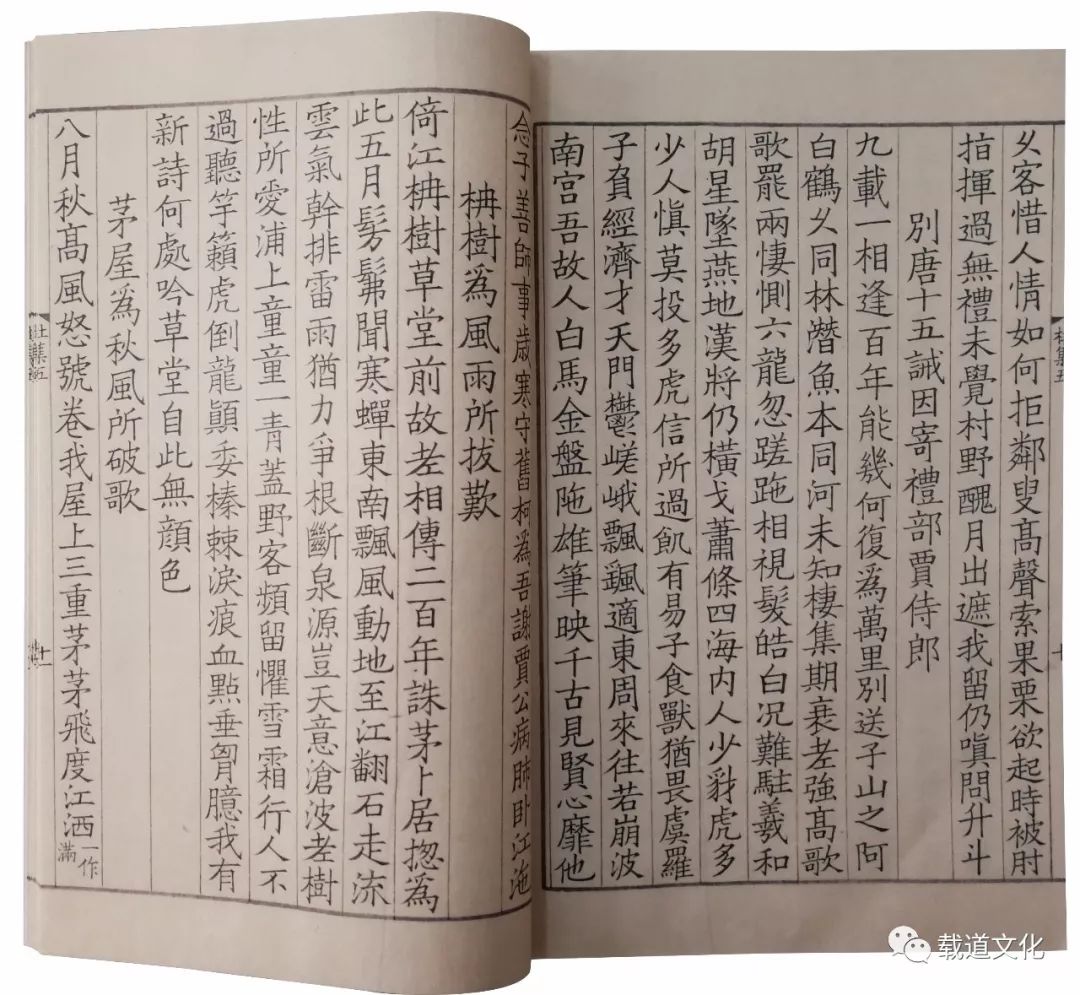 久客惜人情如何拒鄰叟髙聲索果栗欲起時被肘
指揮過無禮未覺村野醜月出遮我留仍嗔問升斗
別唐十五誡因寄禮部賈侍郎
九載一相逢百年能幾何復爲萬里別送子山之阿
白鶴久同林潛魚本同河未知棲集期衰老強髙歌
歌罷兩悽惻六龍忽蹉跎相視髮皓白况難駐羲和
胡星墜燕地漢將仍橫戈蕭條四海內人少豺虎多
少人慎莫投多虎信所過飢有易子食獸猶畏虞羅
子負經濟才天門鬱嵯峨飄颻適東周來往若崩波
南宫吾故人白馬金盤陁雄筆映千古見賢心靡他
杜集五
念子善師事歲寒守舊柯為吾謝賈公病肺卧江沱
柟樹爲風雨所拔歎
倚江柟樹草堂前故老相傳二百年誅茅卜居揔爲
此五月髣髴聞寒蟬東南飄風動地至江翻石走流
雲氣幹排雷雨猶力爭根斷泉源豈天意滄波老樹
性所愛浦上童童一青蓋野客頻留懼雪霜行人不
過聽竽籟虎倒龍顛委榛棘淚痕血點垂胷臆我有
新詩何處吟草堂自此無顔色
茅屋爲秋風所破歌
八月秋髙風怒號卷我屋上三重茅茅飛度江洒一作滿
杜集五
十一
载道文化